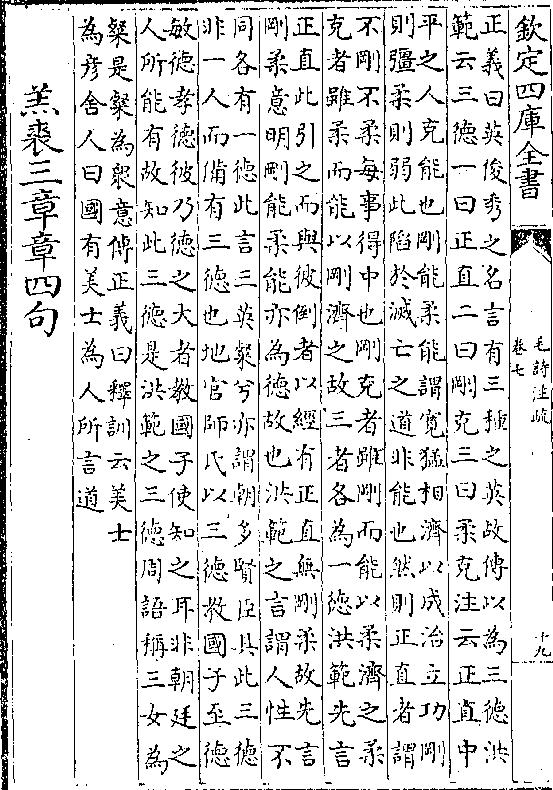 欽定四庫全書
毛詩注疏
卷七
十九
正義曰英俊秀之名言有三種之英故傳以為三德洪
範云三德一曰正直二曰剛克三曰柔克注云正直中
平之人克能也剛能柔能謂寬猛相濟以成治立功剛
則彊柔則弱此陷於滅亡之道非能也然則正直者謂
不剛不柔每事得中也剛克者雖剛而能以柔濟之柔
克者雖柔而能以剛濟之故三者各為一德洪範先言
正直此引之而與彼倒者以經有正直無剛柔故先言
剛柔意明剛能柔能亦為德故也洪範之言謂人性不
同各有一德此言三英粲兮亦謂朝多賢臣具此三德
非一人而備有三德也地官師氏以三德教國子至德
敏德孝德彼乃德之大者教國子使知之耳非朝廷之
人所能有故知此三德是洪範之三德周語稱三女為
粲是粲為衆意傳正義曰釋訓云美士
為彥舍人曰國有美士為人所言道
羔裘三章章四句